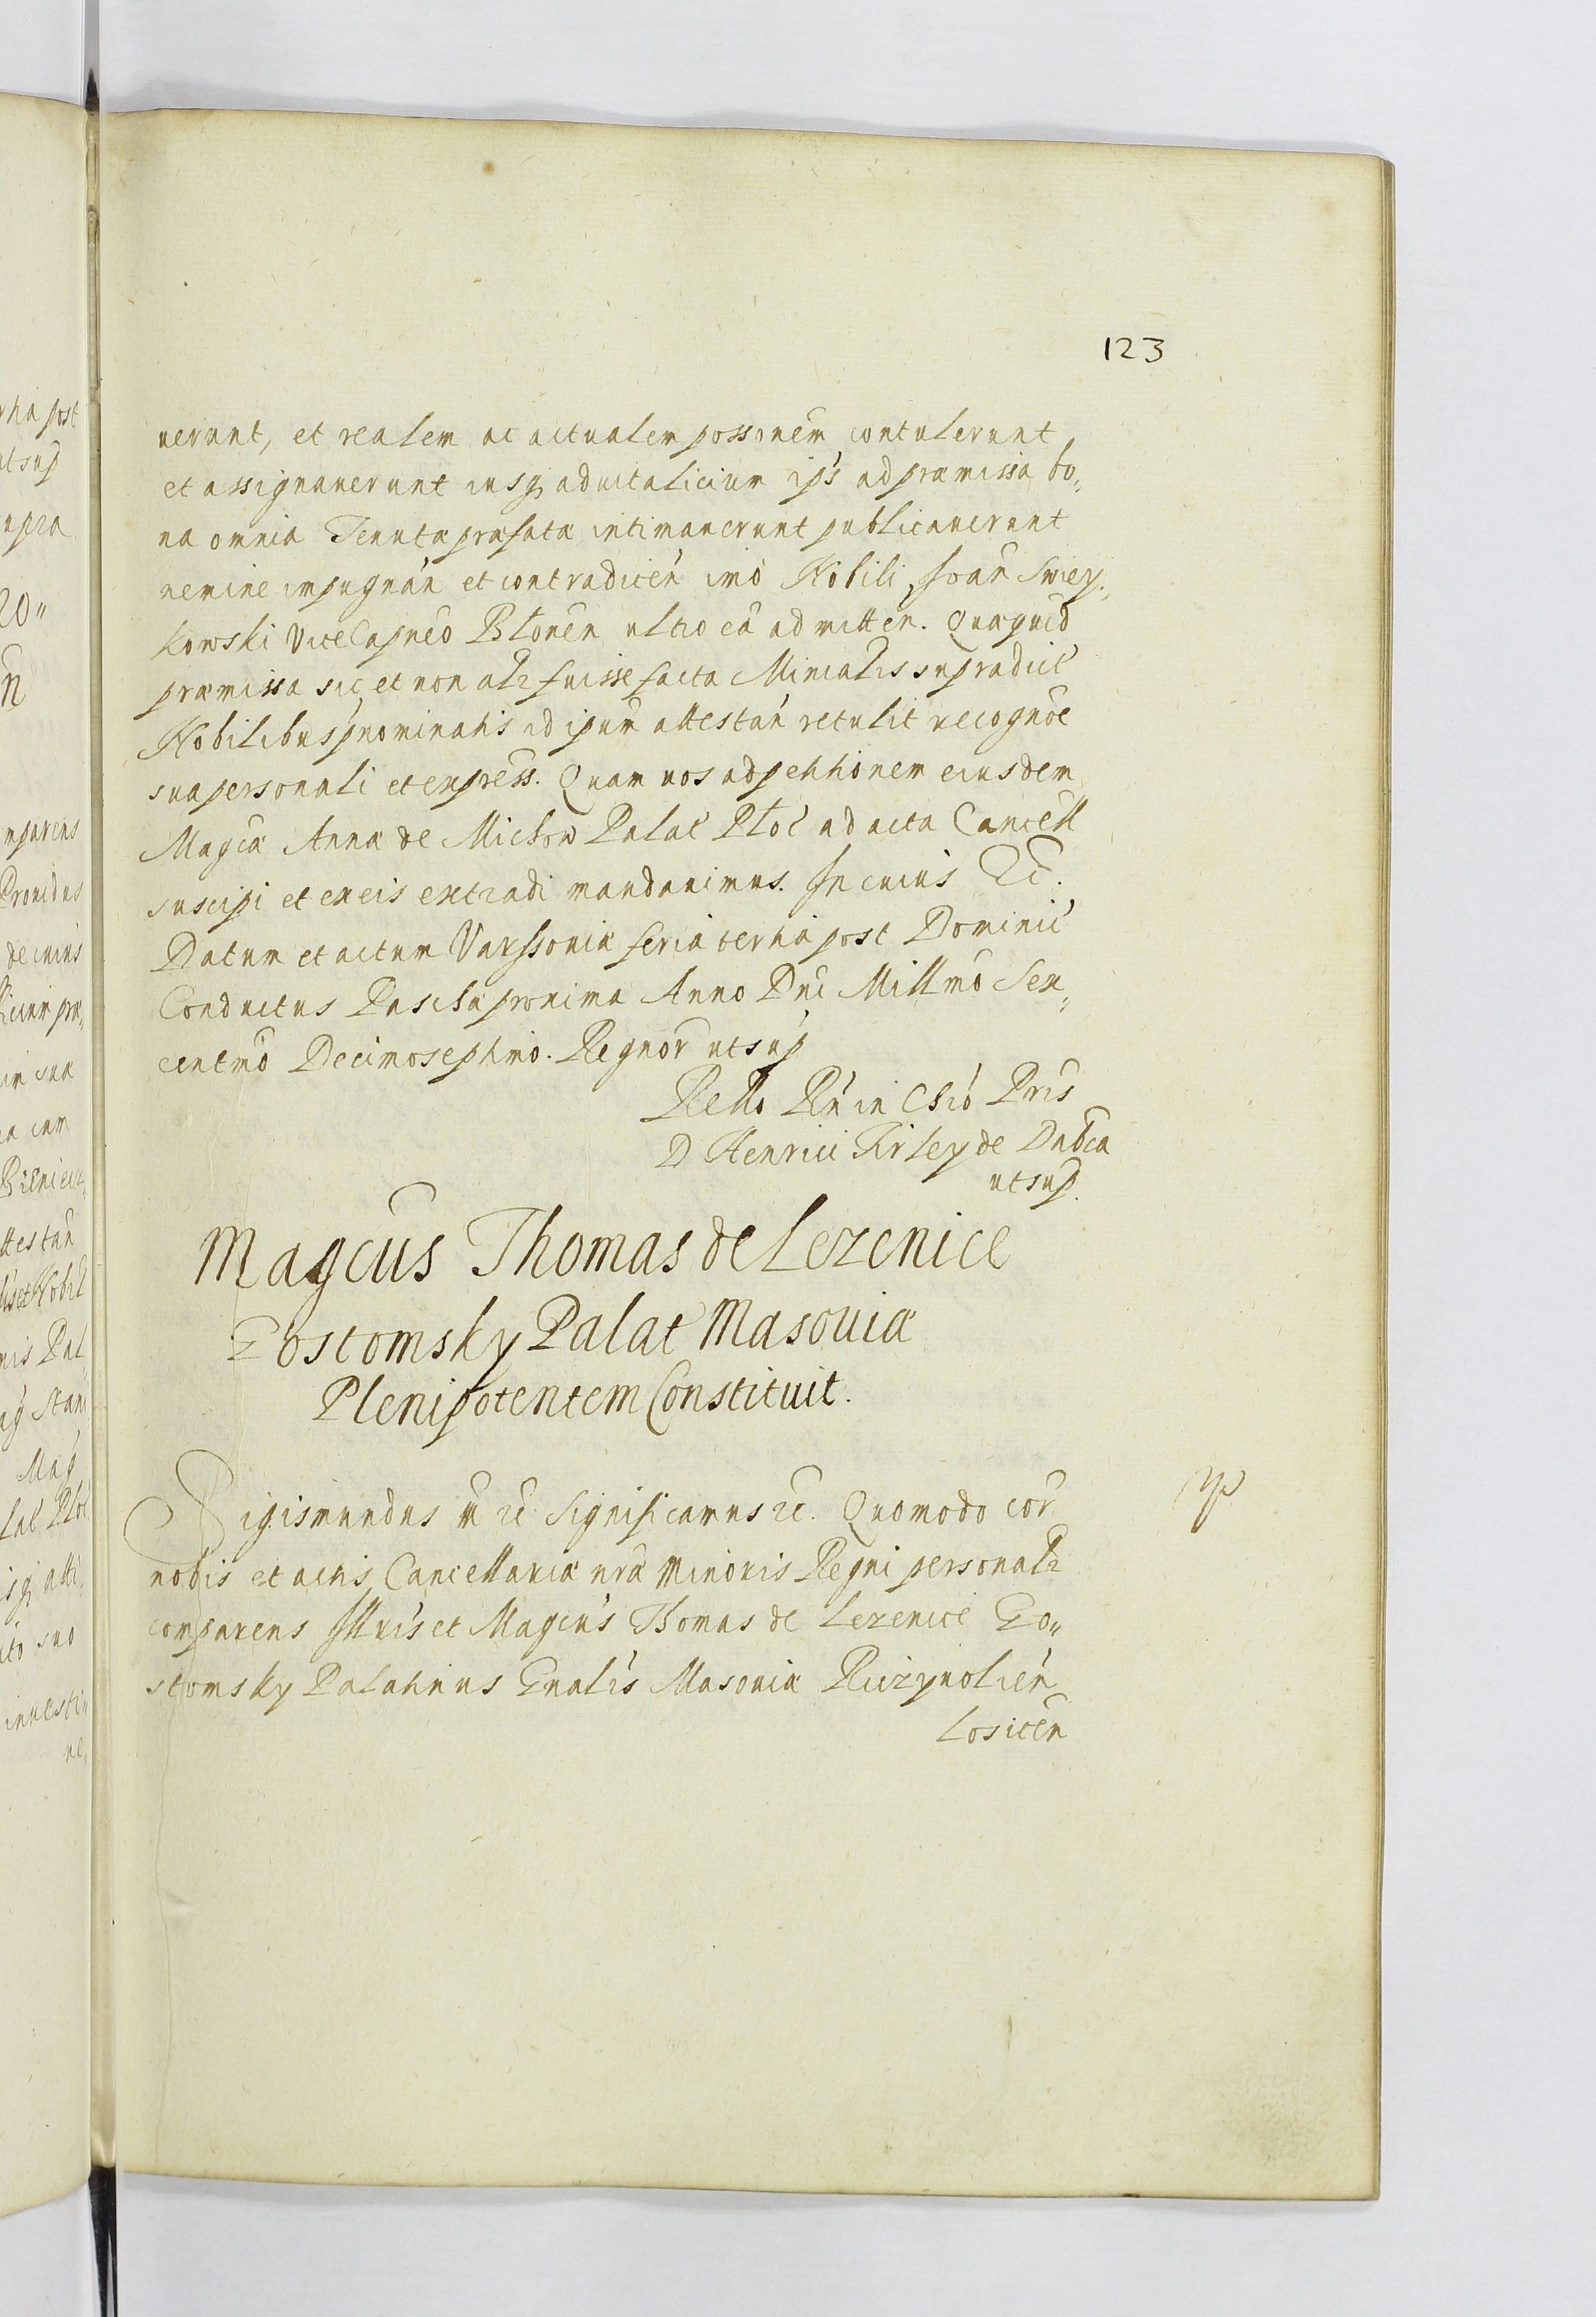 123
uerunt, et realem ac actualem possonem contulerunt
et assignauerunt iusq, aduitalicium ip's ad præmissa bo„
na omnia Tenutæ præfatæ intimauerunt publicauerunt
nemine impugnan et contradicen imo Nobili Joan Swiey„
kowski ViceCapneo Blonen ultro ea admitten. Quæquid
præmissa sic et non alr fuisse facta Mirialis supradict
Nobilibus pnominatis id ipum attestan retulit recogñoe
sua personali et express. Quam nos ad petitionem eiusdem
Magcæ Annæ de Michow Palat Ploc ad acta Cancell
suscipi et ex eis extradi mandauimus. In cuius Ec.
Datum et actum Varssouiæ feria tertia post Dominic
Conductus Paschæ proxima Anno Dni Millmo Sex„
centmo Decimoseptimo. Regnor ut sup
Retto Rn in Chro Pris
D Henrici Firley de Dabca
ut sup.
Magcus Thomas de Lezenice
Gostomsky Palat Masouiæ
Plenipotentem Constituit.
Sigismundus 3 rc Significamus rc. Quomodo cor
nobis et actis Cancellariæ nræ Minoris Regni personalr
comparens Illris et Magcus Thomas de Lezenice Go„
stomsky Palatinus Gnalis Masouiæ Ruzynolien
Losicen
ut sup
upra
20„
n
mparens
Prouidus
de cuius
in sua
ea cum
ttestan
is Pal
Mag
Lat Ploc
ito suo